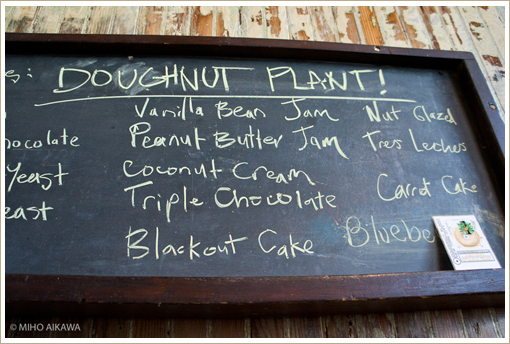 s: DOUGHNUT PLANT!
Vanilla Bean Jam
Nut Glazd
hocolate
Peanut Butter Jam
Tres Leches
Yeast
Coconut Cream
Triple Chocolate
Carrot Cake
east
Blackout Cake
Bluebe
© MIHO AIKAWA